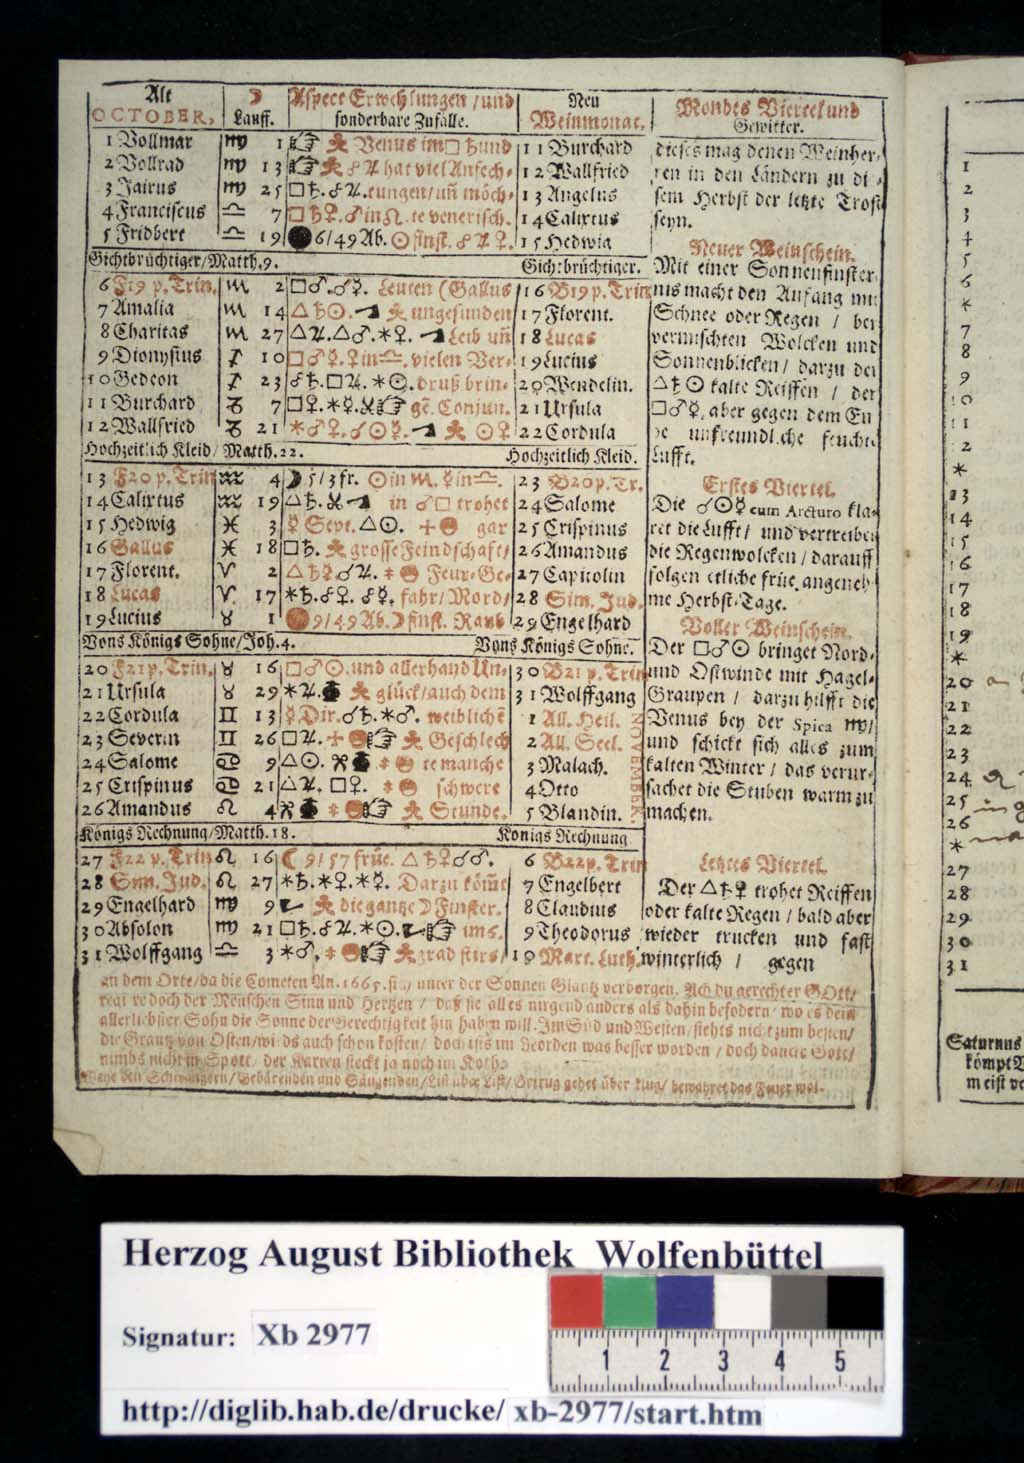 Alt
OCTOBER,
☽
Lauff.
Aspect Erwehlungen / und
sonderbare Zufälle.
Neu
Weinmonat.
Mondes Viertel und
Gewitter.
1 Vollmar ♍ 1 ☞ Venus im □ ♄ und 11 Burchard
2 Vollrad ♍ 13 ☞ ☍ ♃ hat viel Anfech- 12 Wallfried
3 Jairus ♍ 25 □ ♄. ☍ ♃. tungen / uñ möch- 13 Angelus
4 Franciscus ♎ 7 □ ♄ ♀. ♂ in ♌. te venerisch. 14 Calixtus
5 Fridbert ♎ 19 ● 6/49 Ab. ☉ finst. ☍ ♃ ♀. 15 Hedwig
Gichtbrüchtiger / Matth. 9. Gichtbrüchtiger.
6 F19 p. Trin. ♏ 2 □ ♂. ☌ ☿. Leuten (Gallus 16 B19 p. Trin
7 Amalia ♏ 14 △ ♄ ☉. ungesunden 17 Florent.
8 Charitas ♏ 27 △ ♃. △ ♂. ✶ ♀. Leib uñ 18 Lucas
9 Dionysius ♐ 10 □ ♂ ☿. ♀ in ♎. vielen Ver- 19 Lucius
10 Gedeon ♐ 23 ☌ ♄. □ ♃. ✶ ☉. druß brin- 20 Wendelin.
11 Burchard ♑ 7 □ ♀. ✶ ☿. ☞ gẽ. Conjun. 21 Ursula
12 Wallfried ♑ 21 ✶ ♂ ♀. ☌ ☉ ☿. ☉ ♀ 22 Cordula
Hochzeitlich Kleid / Matth. 22. Hochzeitlich Kleid.
13 F20 p. Trin ♒ 4 ☽ 5/3 fr. ☉ in ♏. ☿ in ♎. 23 B20 p. Tr.
14 Calixtus ♒ 19 △ ♄. in ♂ □ trohet 24 Salome
15 Hedwig ♓ 3 ☿ Sept. △ ☉. gar 25 Crispinus
16 Gallus ♓ 18 □ ♄. grosse Feindschaft / 26 Amandus
17 Florent. ♈ 2 △ ♄ ☿. ☌ ♃. Feur-Ge- 27 Capitolin
18 Lucas ♈ 17 ✶ ♄. ☍ ♀. ☍ ☿. fahr / Mord / 28 Sim. Jud.
19 Lucius ♉ 1 9/49 Ab. ☽ finst. Raub 29 Engelhard
Vons Königs Sohne / Joh. 4. Vons Königs Sohne.
20 F21 p. Trin. ♉ 16 □ ♂ ☉. und allerhand Un- 30 B21 p. Trin
21 Ursula ♉ 29 ✶ ♃. glück / auch dem 31 Wolffgang
22 Cordula ♊ 13 ☿ Dir. ☍ ♄. ✶ ♂. weiblichẽ 1 All. Heil.
23 Severin ♊ 26 □ ♃. ☞ Geschlech 2 All. Seel.
24 Salome ♋ 9 △ ☉. te manche 3 Malach.
25 Crispinus ♋ 21 △ ♃. □ ♀. schwere 4 Otto
26 Amandus ♌ 4 ☞ Stunde. 5 Blandin.
NOVEMBER.
Königs Rechnung / Matth. 18. Königs Rechnung
27 F22 p. Trin ♌ 16 ☾ 9/57 früe. △ ♄ ♀ ☌ ♂. 6 B22 p. Trin
28 Sim. Jud. ♌ 27 ✶ ♄. ✶ ♀. ✶ ☿. Darzu kömt 7 Engelbert
29 Engelhard ♍ 9 die gantze ☽ Finster. 8 Claudius
30 Absolon ♍ 21 □ ♄. ☍ ♃. ✶ ☉. ☞ im 5. 9 Theodorus
31 Wolffgang ♎ 3 ✶ ♂. ☞ grad 10 Mart. Luth.
dieses mag denen Weinher-
ren in den Ländern zu di-
sem Herbst der letzte Trost
seyn.
Neuer Weinschein.
Mit einer Sonnenfinster-
nis macht den Anfang mit
Schnee oder Regen / bey
vermischten Wolcken und
Sonnenblicken / darzu der
△ ♄ ☉ kalte Reiffen / der
□ ♂ ☿, aber gegen dem En
de unfreundliche feuchte
Lufft.
Erstes Viertel.
Die ☌ ☉ ☿ cum Arcturo kla-
ret die Lufft / und vertreibet
die Regenwolcken / darauff
folgen etliche früe angeneh-
me Herbst-Tage.
Voller Weinschein.
Der □ ♂ ☉ bringet Nord-
und Ostwinde mit Hagel-
Graupen / darzu hilfft die
Venus bey der Spica ♍ /
und schickt sich alles zum
kalten Winter / das verur-
sachet die Stuben warm zu
machen.
Letztes Viertel.
Der △ ♄ ♀ trohet Reiffen
oder kalte Regen / bald aber
wieder trucken und fast
winterlich / gegen
an dem Orte / da die Cometen An. 1665. unter der Sonnen Glantz verborgen. Ach du gerechter GOtt /
regire doch der Menschen Sinn und Hertzen / daß sie alles nirgend anders als dahin befodern / wo es dein
allerliebster Sohn die Sonne der Gerechtigkeit hin haben will. Im Süd und Westen / stehts nicht zum besten /
die Grantz von Osten / wirds auch schon kosten / doch ists im Norden was besser worden / doch dancte Gott /
nimbs nicht in Spott / der Karren steckt ja noch im Koth.
Wehe den Schwangern / Gebärenden und Säugenden / List über List / Betrug gehet über klug / bewahret das Feuer wol.
1
2
3
4
5
6
*
7
8
9
10
11
12
*
13
14
15
16
17
18
19
*
20
21
22
23
24
25
26
*
27
28
29
30
31
Saturnus
kömpt
meist
Herzog August Bibliothek Wolfenbüttel
Signatur: Xb 2977
1 2 3 4 5
http://diglib.hab.de/drucke/ xb-2977/start.htm